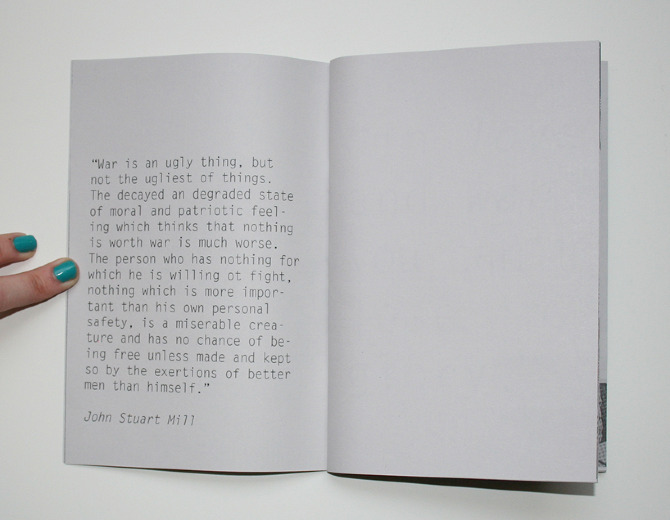 “War is an ugly thing, but
not the ugliest of things.
The decayed an degraded state
of moral and patriotic feel-
ing which thinks that nothing
is worth war is much worse.
The person who has nothing for
which he is willing ot fight,
nothing which is more impor-
tant than his own personal
safety, is a miserable crea-
ture and has no chance of be-
ing free unless made and kept
so by the exertions of better
men than himself.”
John Stuart Mill